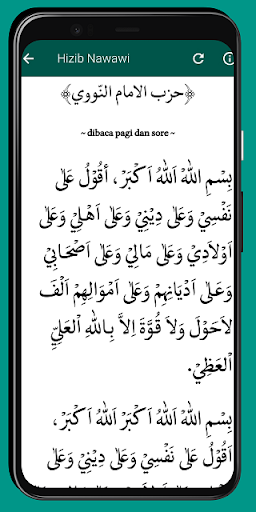 Hizib Nawawi
﴿حزب الامام النّووي﴾
~ dibaca pagi dan sore ~
بِسْمِ اللّٰهِ اَللّٰهُ اَكْبَرْ ، أَقُوْلُ عَلٰى
نَفْسِيْ وَعَلٰى دِيْنِيْ وَعَلٰى اَهْلِيْ وَعَلٰى
اَوْلَادِيْ وَعَلٰى مَالِيْ وَعَلٰى اَصْحَابِيْ
وَعَلٰى اَدْيَانِهِمْ وَعَلٰى اَمْوَالِهِمْ اَلْفَ
لاَحَوْلَ وَلاَ قُوَّةَ اِلاَّ بِاللّٰهِ الْعَلِيِّ
الْعَظِيْمِ.
بِسْمِ اللّٰهِ اَللّٰهُ اَكْبَرُ اَللّٰهُ اَكْبَرْ ،
اَقُوْلُ عَلٰى نَفْسِيْ وَعَلٰى دِيْنِيْ وَعَلٰى